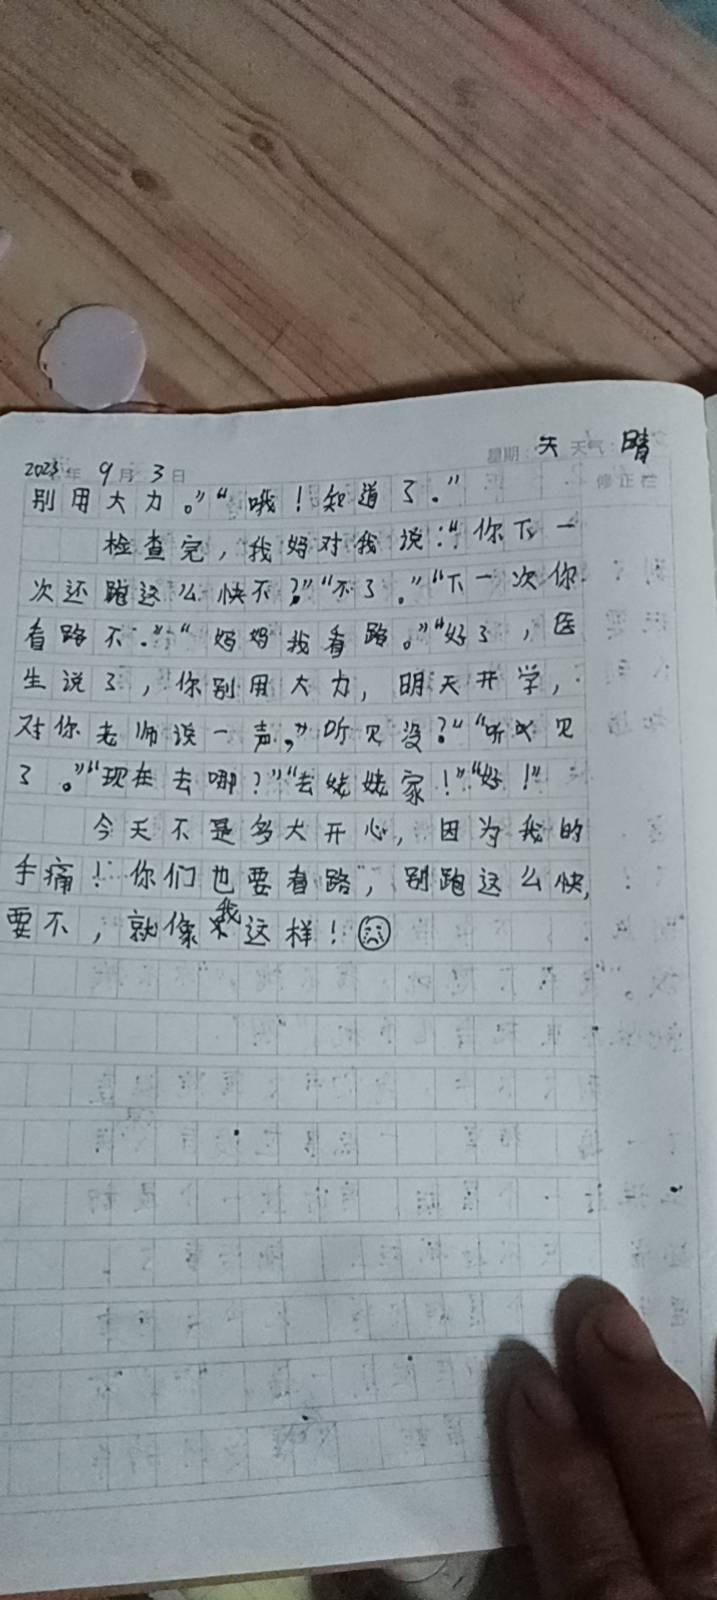 2023年 9月 3日 星期: 天 天气: 晴
修正栏
别用大力。”“哦!知道了。”
检查完,我妈对我说:“你下一
次还跑这么快不?”“不了。”“下一次你
看路不.”“妈妈我看路。”“好了,医
生说了,你别用大力,明天开学,
对你老师说一声,”听见没?“听见
了。”“现在去哪?”“去姥姥家!”“好!”
今天不是多大开心,因为我的
手痛!你们也要看路”,别跑这么快,
要不,就像我这样!